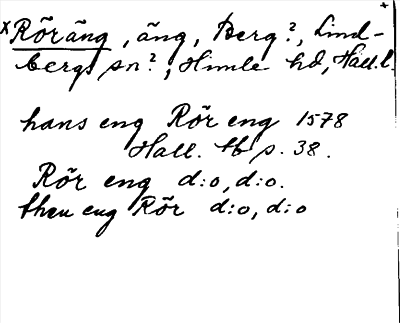 x Röräng, äng, Berg?, Lind-
bergs sn?, Himle hd, Hall. l.
hans eng Rör eng 1578
Hall. tb s. 38.
Rör eng d:o, d:o.
then eng Rör d:o, d:o